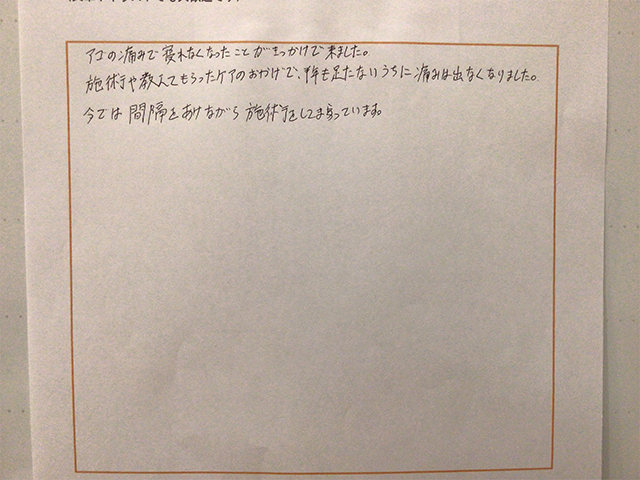 アゴの痛みで寝れなくなったことがきっかけで来ました。
施術や教えてもらったケアのおかげで、半年も足たないうちに痛みは出なくなりました。
今では間隔をあけながら施術をしてもらっています。